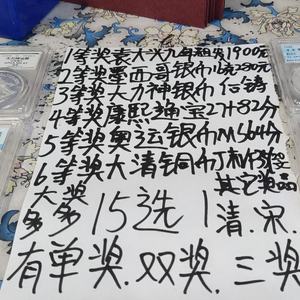 1等奖袁大头九年粗发1900元
2等奖墨西哥银币
3等奖大力神银币
4等奖康熙通宝27+82分
5等奖奥运银币MS64分
6等奖大清铜币
其它奖品
大奖多多
15选1清.宋.
有单奖.双奖.三奖